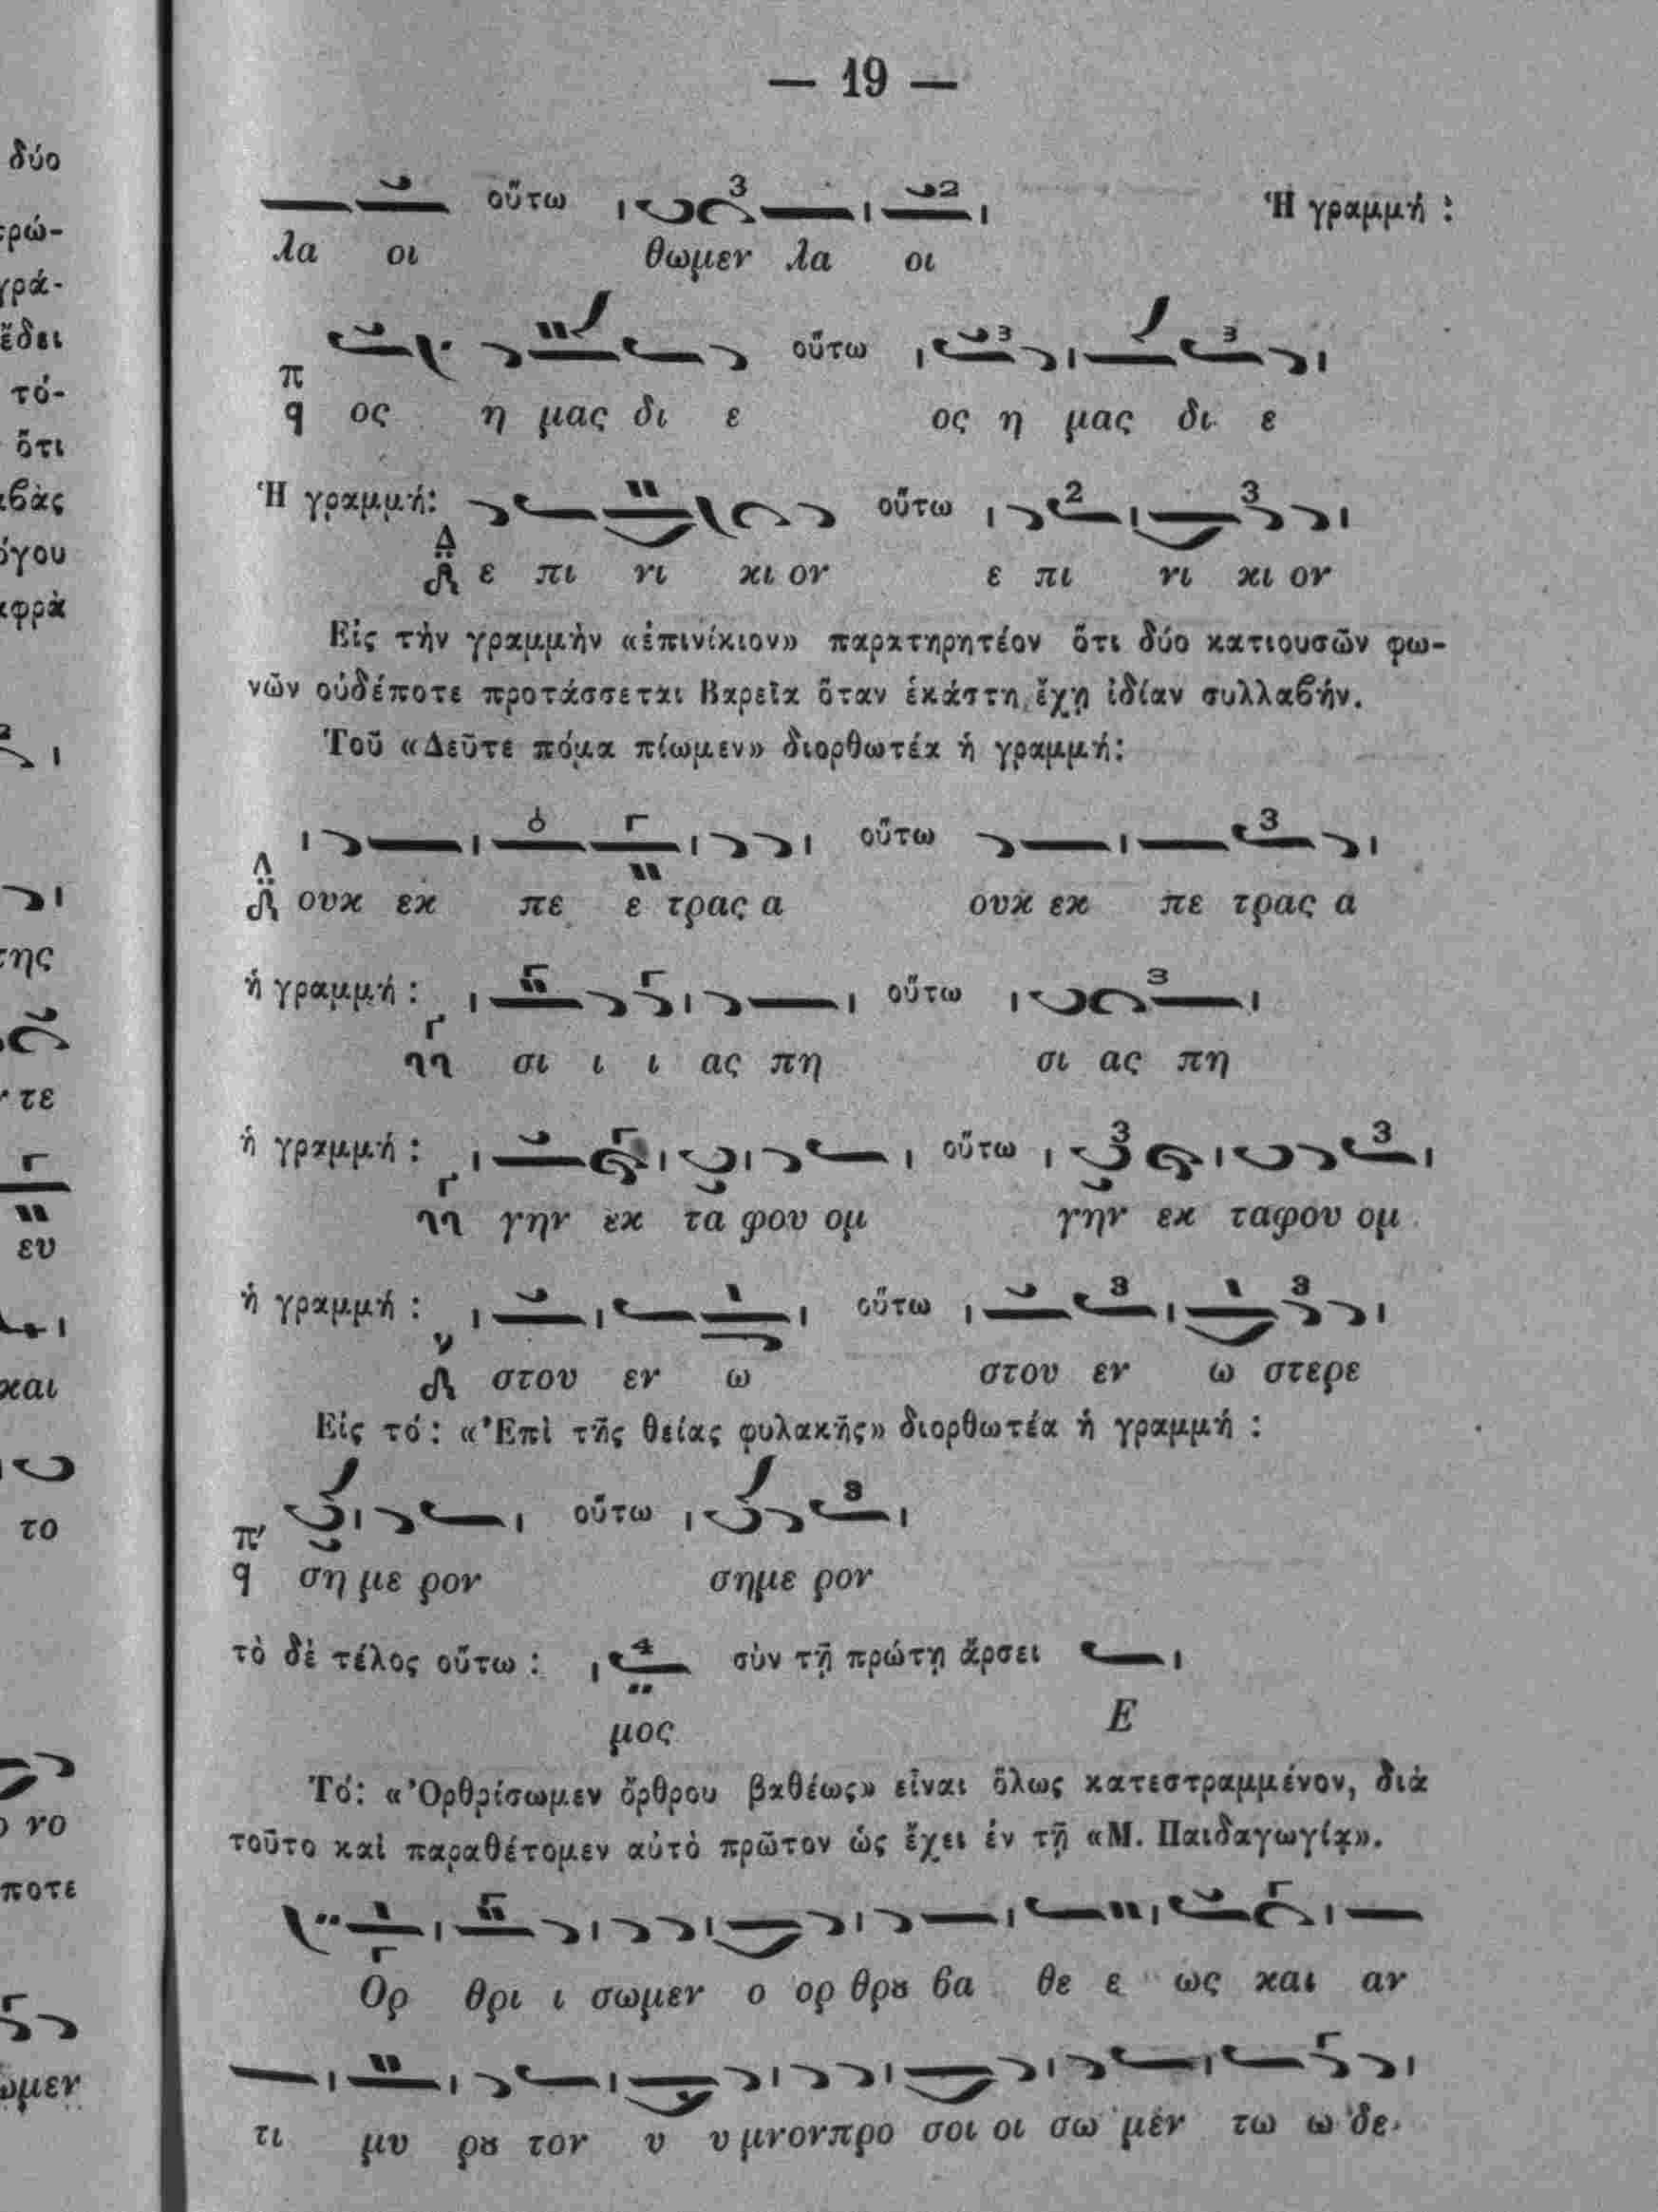 — 19 —
οὕτω Ἡ γραμμή :
λα οι θωμεν λα οι
οὕτω
π
q ος η μας δι ε ος η μας δι ε
Ἡ γραμμή: οὕτω
Δ
ε πι νι κι ον ε πι νι κι ον
Εἰς τὴν γραμμὴν «ἐπινίκιον» παρατηρητέον ὅτι δύο κατιουσῶν φω-
νῶν οὐδέποτε προτάσσεται Βαρεῖα ὅταν ἑκάστη ἔχῃ ἰδίαν συλλαβήν.
Τοῦ «Δεῦτε πόμα πίωμεν» διορθωτέα ἡ γραμμή:
οὕτω
ουκ εκ πε ε τρας α ουκ εκ πε τρας α
ἡ γραμμή : οὕτω
σι ι ι ας πη σι ας πη
ἡ γραμμή : οὕτω
γην εκ τα φου ομ γην εκ ταφου ομ
ἡ γραμμή : οὕτω
ν
στου εν ω στου εν ω στερε
Εἰς τό: «Ἐπὶ τῆς θείας φυλακῆς» διορθωτέα ἡ γραμμή :
οὕτω
π'
q ση με ρον σημε ρον
τὸ δὲ τέλος οὕτω : σὺν τῇ πρώτῃ ἄρσει
μος Ε
Τό: «Ὀρθρίσωμεν ὄρθρου βαθέως» εἶναι ὅλως κατεστραμμένον, διὰ
τοῦτο καὶ παραθέτομεν αὐτὸ πρῶτον ὡς ἔχει ἐν τῇ «Μ. Παιδαγωγίᾳ».
Ορ θρι ι σωμεν ο ορ θρȣ βα θε ε ως και αν
τι μυ ρȣ τον υ υμνονπρο σοι οι σω μεν τω ω δε
δύο
τό-
ὅτι
της
τε
ευ
και
το
νο
ποτε
ωμεν